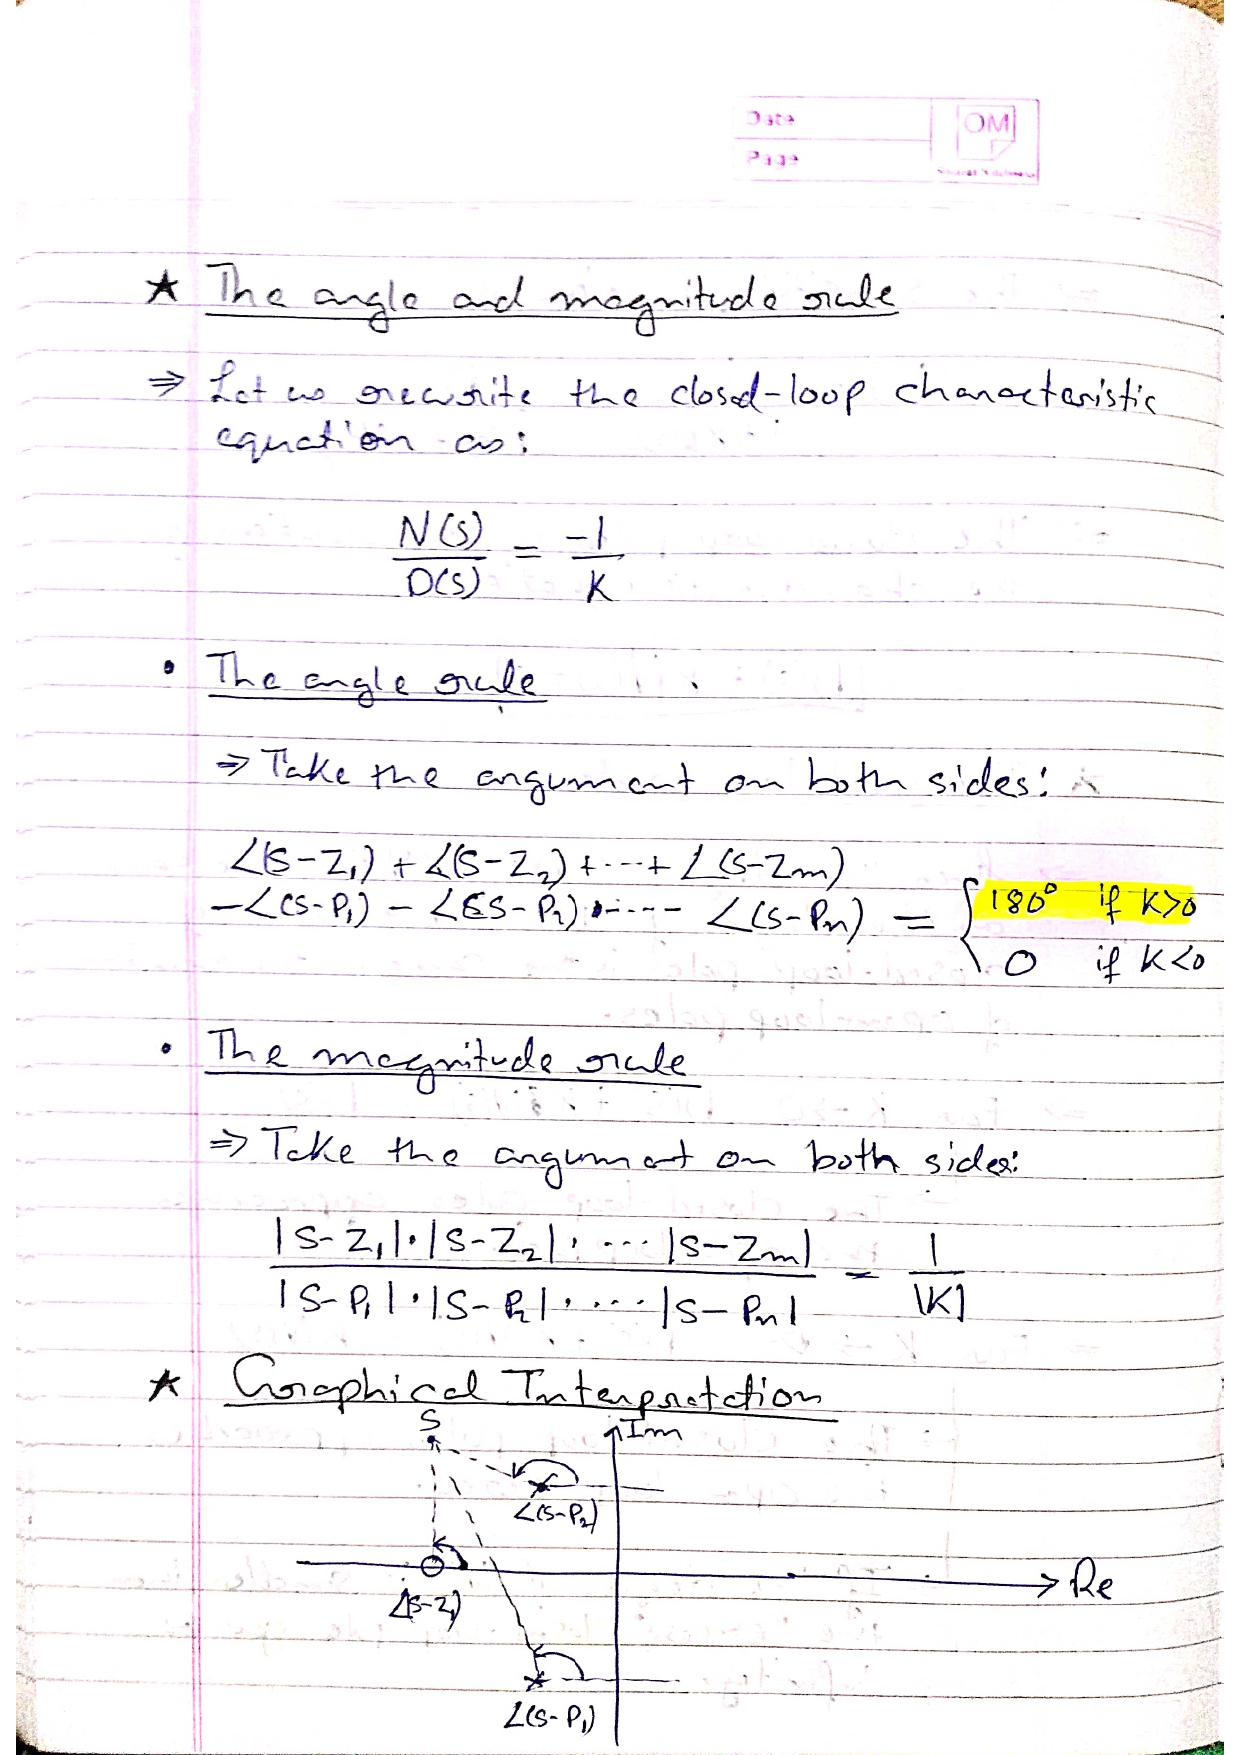 Date
Page
OM
★ The angle and magnitude rule
⇒ Let us rewrite the closed-loop characteristic
equation as:
N(s)/D(s) = -1/K
• The angle rule
⇒ Take the argument on both sides:
∠(s-z₁) + ∠(s-z₂) + ---- + ∠(s-zm)
-∠(s-p₁) - ∠(s-p₂) ---- ∠(s-pn) = { 180° if K>0
0 if K<0
• The magnitude rule
⇒ Take the argument on both sides:
|s-z₁|·|s-z₂|· ---- |s-zm| / |s-p₁|·|s-p₂|· ---- |s-pn| = 1/|K|
★ Graphical Interpretation
s
Im
∠(s-p₂)
Re
∠(s-z₁)
∠(s-p₁)